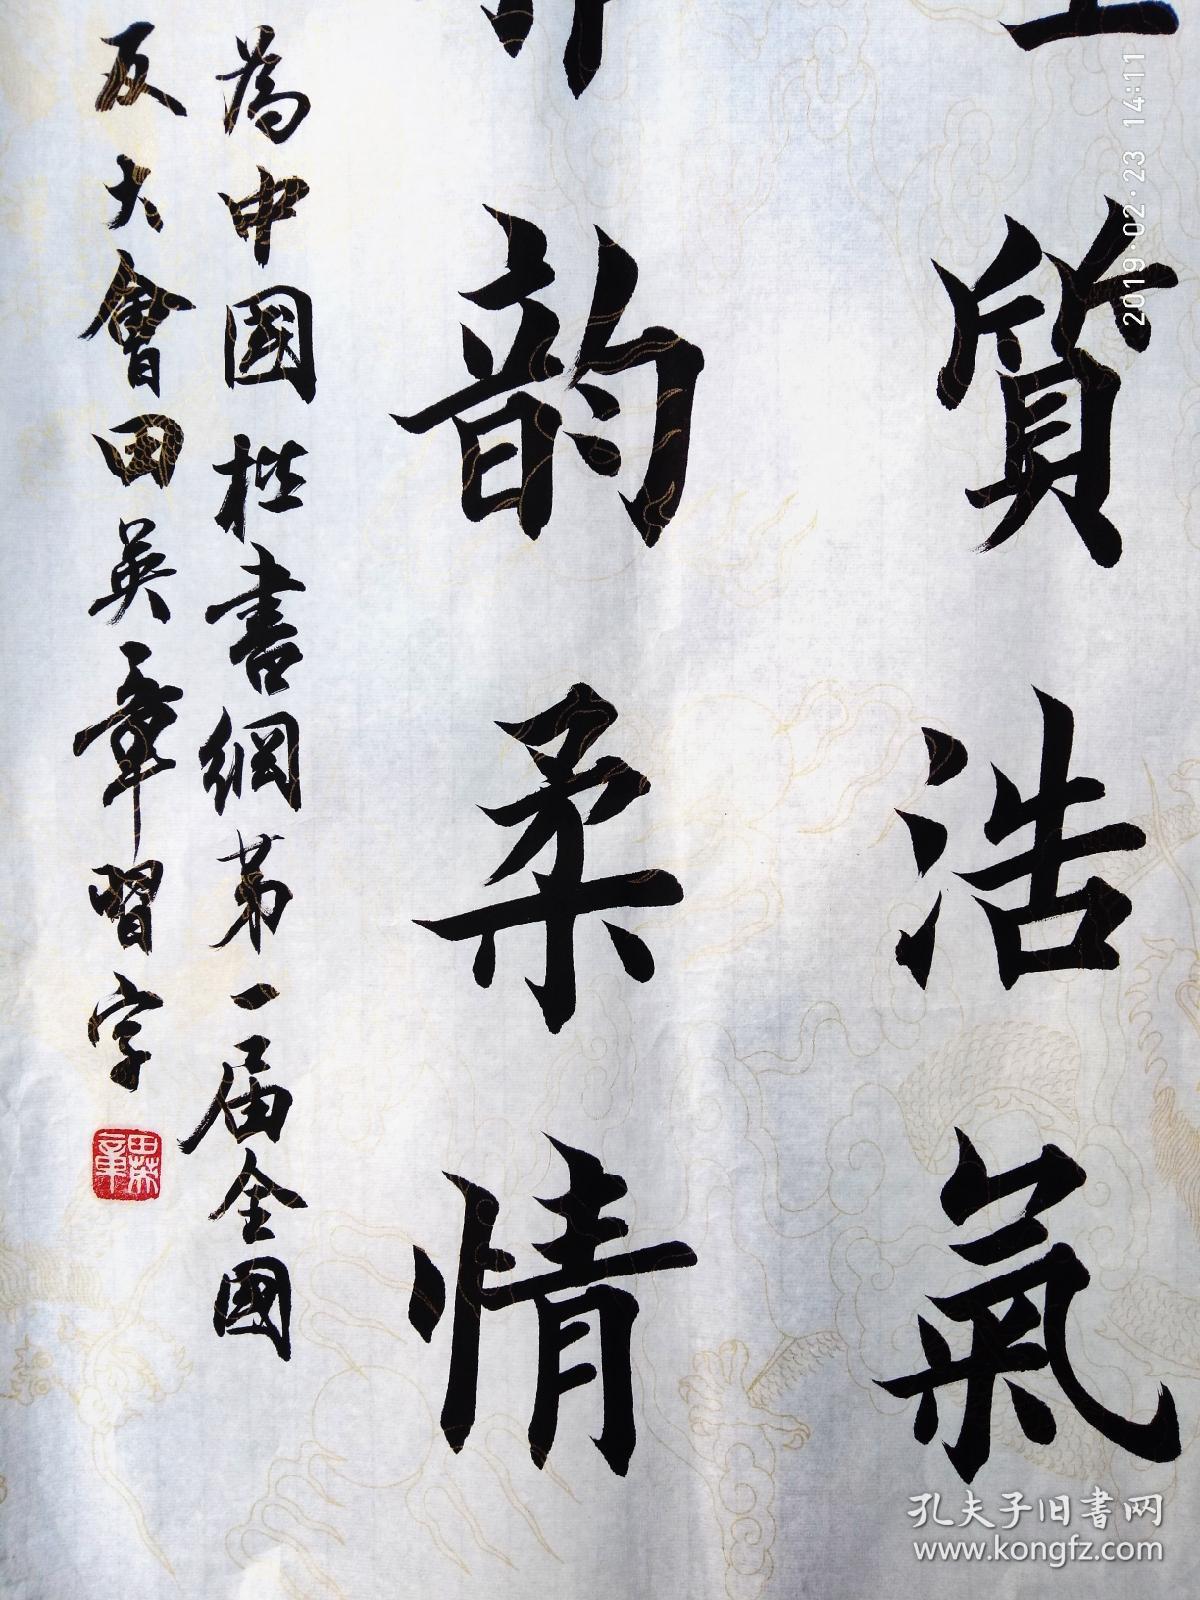 質浩氣
韵柔情
為中國楷書網第一届全國
反大會田英章習字
田英章
2019·02·23 14:11
孔夫子旧書网
www.kongfz.com